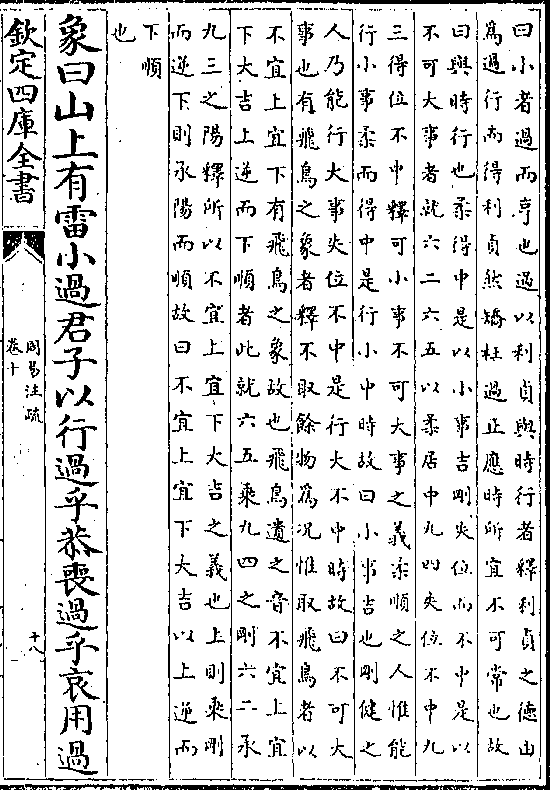 曰小者過而亨也過以利貞與時行者釋利貞之德由
爲過行而得利貞然矯枉過正應時所宜不可常也故
曰與時行也柔得中是以小事吉剛失位而不中是以
不可大事者就六二六五以柔居中九四失位不中九
三得位不中釋可小事不可大事之義柔順之人惟能
行小事柔而得中是行小中時故曰小事吉也剛健之
人乃能行大事失位不中是行大不中時故曰不可大
事也有飛鳥之象者釋不取餘物爲况惟取飛鳥者以
不宜上宜下有飛鳥之象故也飛鳥遺之音不宜上宜
下大吉上逆而下順者此就六五乘九四之剛六二承
九三之陽釋所以不宜上宜下大吉之義也上則乘剛
而逆下則承陽而順故曰不宜上宜下大吉以上逆而
下順
也
象曰山上有雷小過君子以行過乎恭喪過乎哀用過
欽定四庫全書
周易注疏
卷十
十八